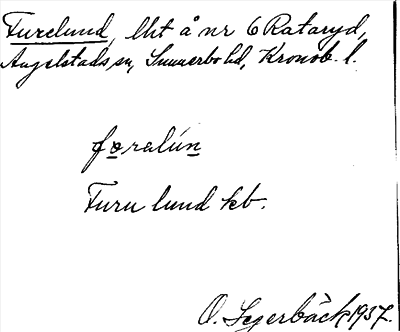 Furelund, lht å nr 6 Rataryd,
Angelstads sn, Sunnerbo hd, Kronob. l.
fǫralún
Furu lund kb.
O. Segerbäck 1937.